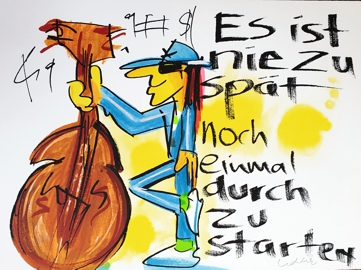 Es ist
nie zu
spät
noch
einmal
durch
zu
starten